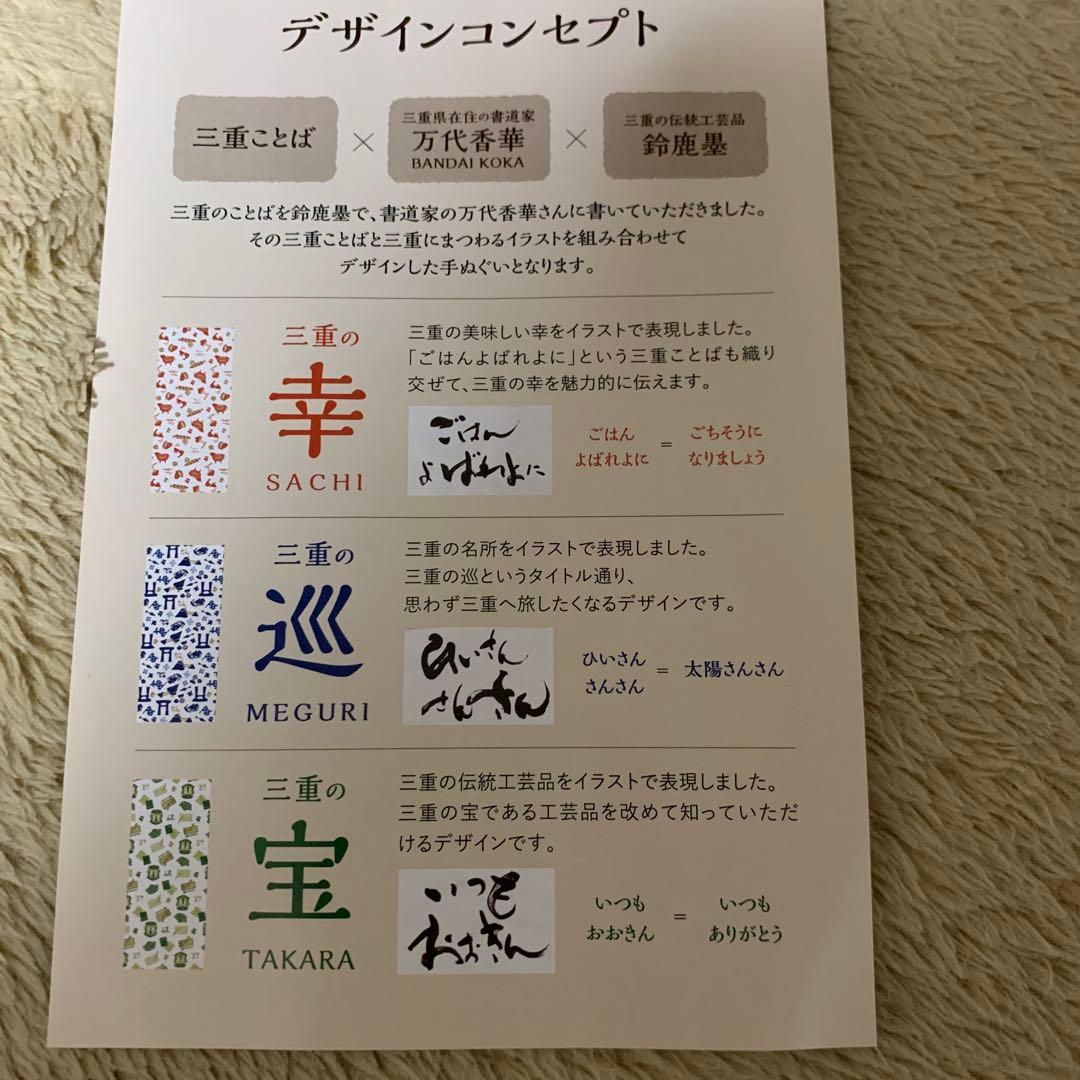 デザインコンセプト
三重ことば
×
三重県在住の書道家
万代香華
BANDAI KOKA
×
三重の伝統工芸品
鈴鹿墨
三重のことばを鈴鹿墨で、書道家の万代香華さんに書いていただきました。
その三重ことばと三重にまつわるイラストを組み合わせて
デザインした手ぬぐいとなります。
三重の
幸
SACHI
三重の美味しい幸をイラストで表現しました。
「ごはんよばれよに」という三重ことばも織り
交ぜて、三重の幸を魅力的に伝えます。
ごはん
よばれよに
ごはん
よばれよに
=
ごちそうに
なりましょう
三重の
巡
MEGURI
三重の名所をイラストで表現しました。
三重の巡というタイトル通り、
思わず三重へ旅したくなるデザインです。
ひいさん
さんさん
ひいさん
さんさん
=
太陽さんさん
三重の
宝
TAKARA
三重の伝統工芸品をイラストで表現しました。
三重の宝である工芸品を改めて知っていただ
けるデザインです。
いつも
おおきん
いつも
おおきん
=
いつも
ありがとう